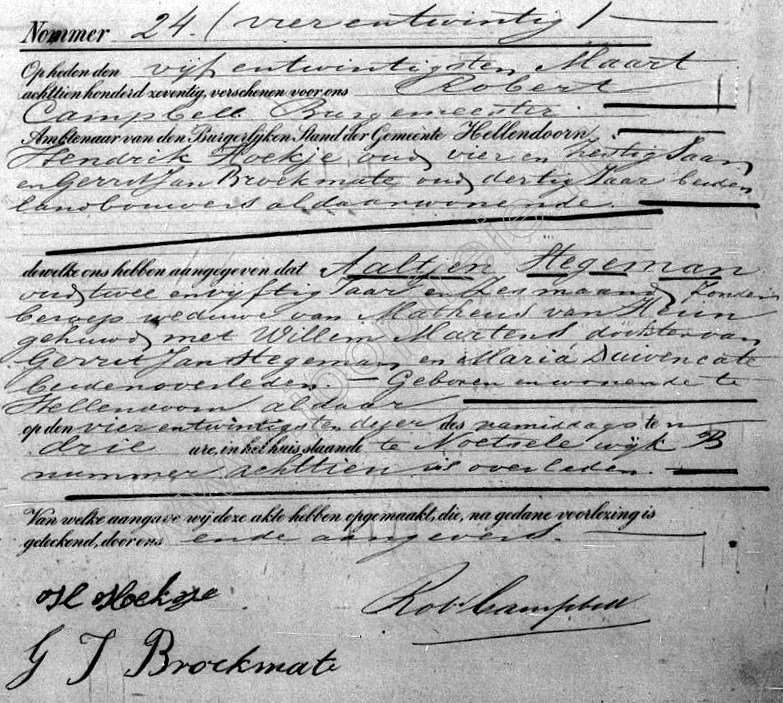 Nommer 24. (vier entwintig)
Op heden den vijf entwintigsten Maart
achttien honderd zeventig, verschenen voor ons Robert
Campbell Burgemeester
Ambtenaar van den Burgerlijken Stand der Gemeente Hellendoorn,
Hendrik Hoekje oud vier en zestig Jaar
en Gerrit Jan Broekmate oud dertig Jaar beiden
landbouwers aldaar wonende.
dewelke ons hebben aangegeven dat Aaltjen Stegeman
oud twee en vyftig Jaar en zes maand, zonder
beroep weduwe van Matheus van
gehuwd met Willem Martens dochter van
Gerrit Jan Stegeman en Maria Duivencate
beiden overleden. — Geboren en wonende te
Hellendoorn aldaar
op den vier entwintigsten dezer des namiddags ten
drie ure, in het huis staande te Noetsele wijk B
nummer achttien is overleden.
Van welke aangave wij deze akte hebben opgemaakt, die, na gedane voorlezing is
geteekend, door ons ende aangevers.
H Hoekje
Rob. Campbell
G J Broekmate